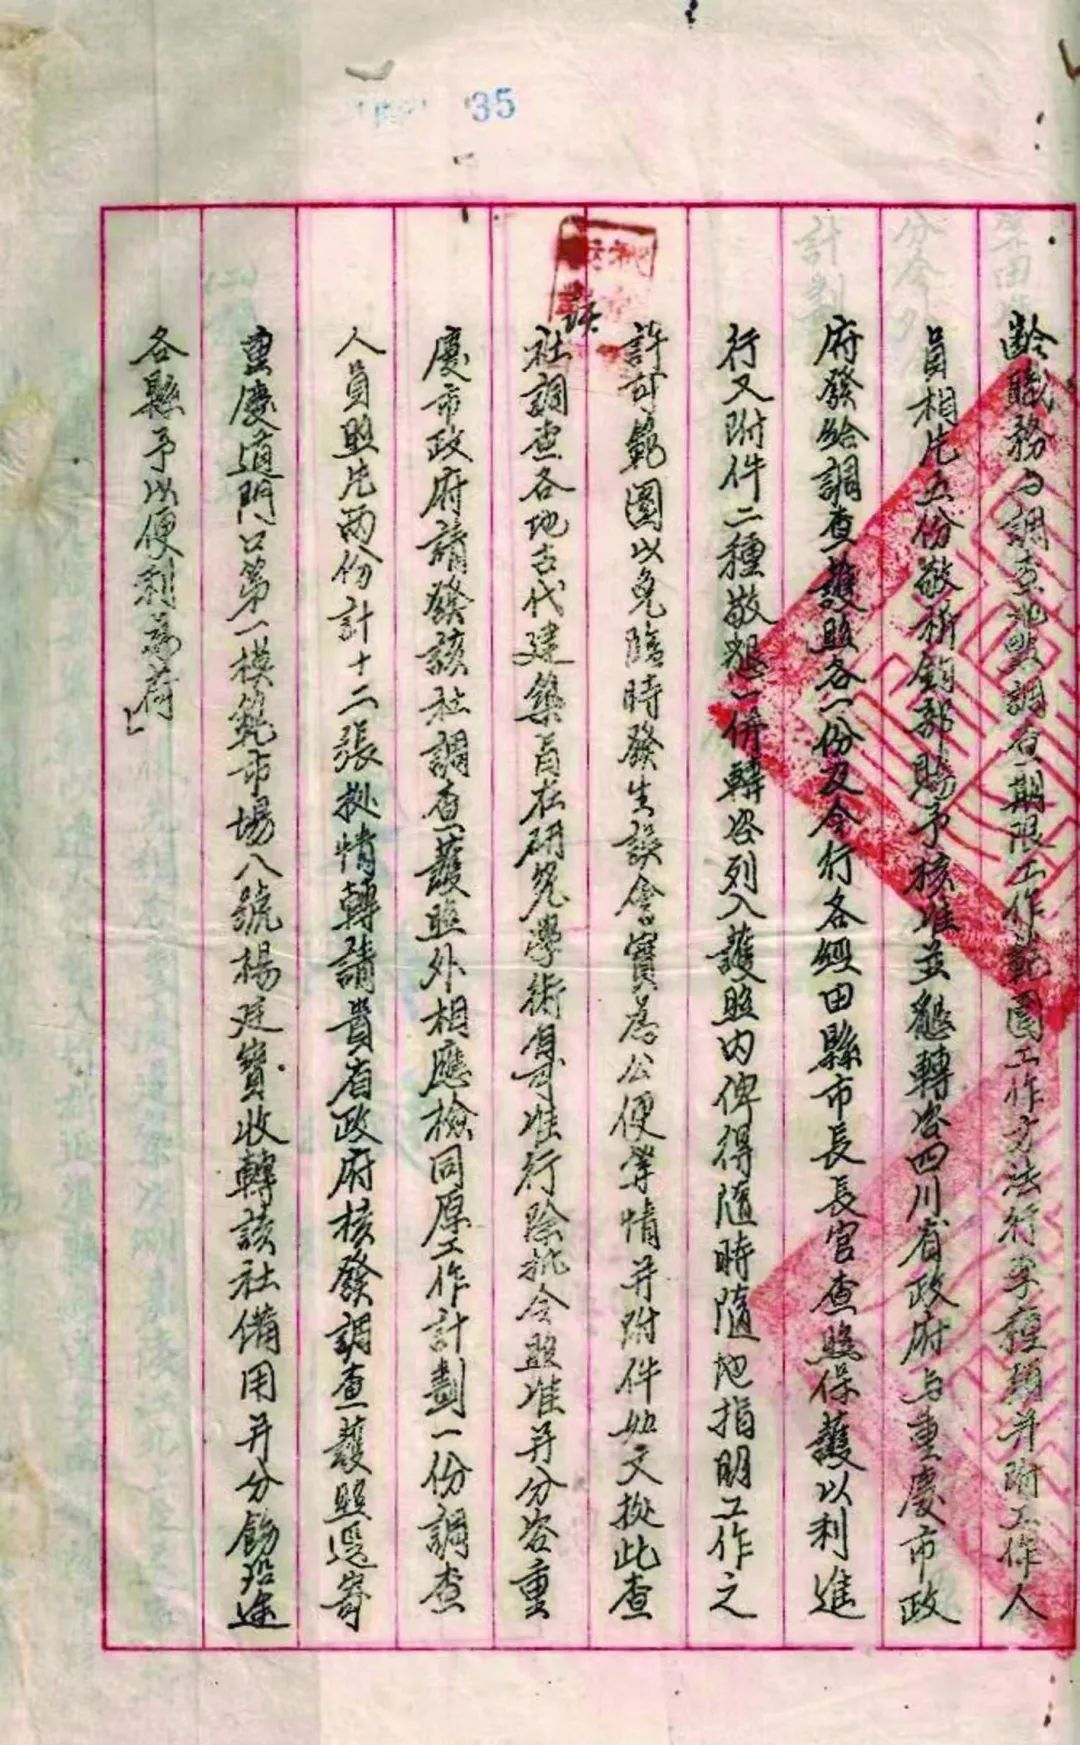 35
齡職務與調查地點調查期限工作範圍工作方法行李種類并附工作人
員相片五份敬祈鈞部賜予核准並懇轉咨四川省政府與重慶市政
府發給調查護照各一份及令行各經由縣市長長官查照保護以利進
行又附件二種敬懇一併轉咨列入護照內俾得隨時隨地指明工作之
許可範圍以免臨時發生誤會實為公便等情并附件如文據此查該
社調查各地古代建築旨在研究學術事尚准行除批令照准并分咨重
慶市政府請發該社調查護照外相應檢同原工作計劃一份調查
人員照片兩份計十二張據情轉請貴省政府核發調查護照逕寄
重慶道門口第一模範市場八號楊廷寶收轉該社備用并分飭沿途
各縣予以便利為荷」